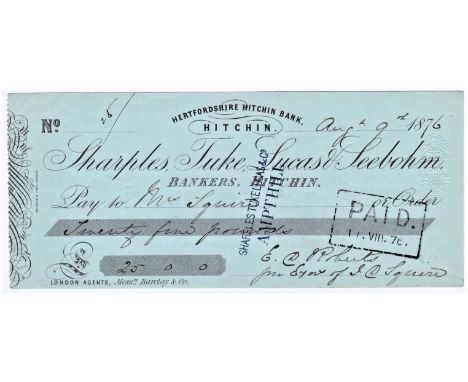 HERTFORDSHIRE HITCHIN BANK.
No
HITCHIN.
Augt 9th 1876
Sharples, Tuke, Lucas & Seebohm,
BANKERS, HITCHIN.
Pay to Mrs Squire or Order
Twenty five pounds
SHARPLES TUKE LUCAS & Co
AMPTHILL
PAID.
11. VIII. 76.
25 0 0
E. C. Roberts
pro Exor of J. C. Squire
LONDON AGENTS, Messrs Barclay & Co.